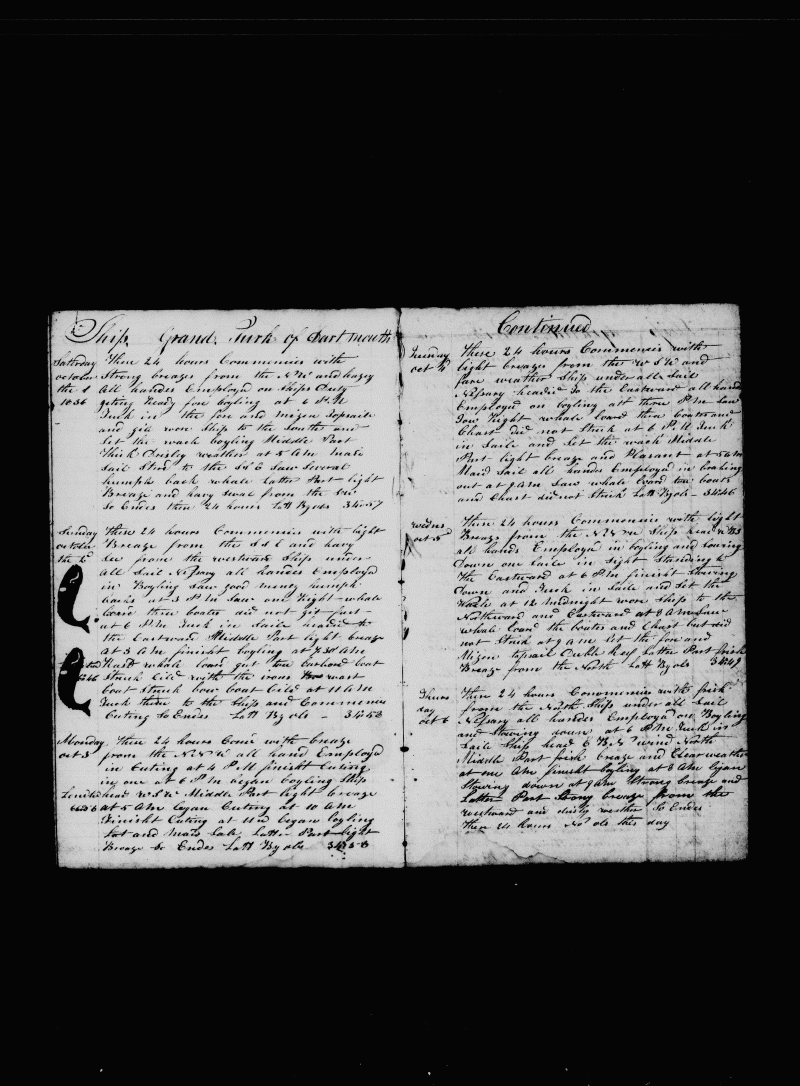 Ship Grand Turk of Dartmouth
Saturday These 24 hours Commencies with
october Strong breaze from the N W and hazey
the 1 All handes Employd on Ships Duty
1836 geting Ready for boyling at 6 P M
Tuck in the fore and Mizen Topsails
and gib wore Ship to the South and
Set the wach boyling Middle Part
Thick weather at 5 A M maid
Sail Stod to the S & E Saw Several
humph back whale Latter Part light
Breaze and havy Swal from the
So Endes these 24 hours Latt By obs 34-57
Sunday These 24 hours Commencies with light
october Breaze from the S S E and havy
the 2 See from the westward Ship under
all Sail Nesary all handes Employed
in Boyling Saw good meney humph
backs at 3 P M Saw one Right whale
Lowrd three boates did not git fast
at 6 P M Tuck in Saile headid to
the Eastward Middle Part light breaze
at 3 A M finisht boyling at 7.30 A M
whale lowrd got two
Struck Cild with the wast
boat Struck bow boat Cild at 11 A M
Tuck them to the Ship and Commencies
Cuting So Endes Latt By obs - 34-53
Monday These 24 hours Comes with breaze
oct 3 from the N N W all hand Employd
in Cuting at 4 P M finisht Cuting
in one at 6 P M began boyling Ship
head W S W Middle Part light breaze
at 5 A M began Cuting at 10 A M
Finisht Cuting at 11 began boyling
and maid Sale Latter Part light
Breaze So Endes Latt By obs
Continued
Tuesday These 24 hours Commencies with
oct 4 light breazes from the W S W and
fare weather Ship under all Sail
Nesary headid to the Eastward all hands
Employd on boyling at three P M Saw
Right whale lowrd three boates and
Chast did not Struck at 6 P M Tuck
in Saile and Set the wach Middle
Part light breaze and Plasant at 5 A M
Maid Sail all hands Employd in
out at 9 A M Saw whale lowrd two boats
and Chast did not Struck Latt By obs - 34-46
wednes These 24 hours Commencies with light
oct 5 Breaze from the N N W Ship head
all hands Employd in boyling and Stowing
Down one Saile in Sight Standing to
The Eastward at 6 P M finisht Stowing
Down and Tuck in Saile and Set the
Wach at 12 Midnight wore Ship to the
Northward and Eastward at 8 A M Saw
whale lowrd the boates and Chast but did
not Struck at 9 A M Set the fore and
Mizen topsail Duble Reef Latter Part frish
Breaze from the North Latt By obs 34-49
Thurs These 24 hours Commencies with frish
day from the North Ship under all Sail
oct 6 Nesary all handes Employd on Boyling
and Stowing down at 6 P M Tuck in
Saile Ship head E B N wind North
Middle Part frish breaze and Clear weather
at A M finisht boyling at 8 A M began
Stowing down at A M Strong breaze and
Latter Part Strong breaze from the
westward and weather So Endes
These 24 hours No obs this day